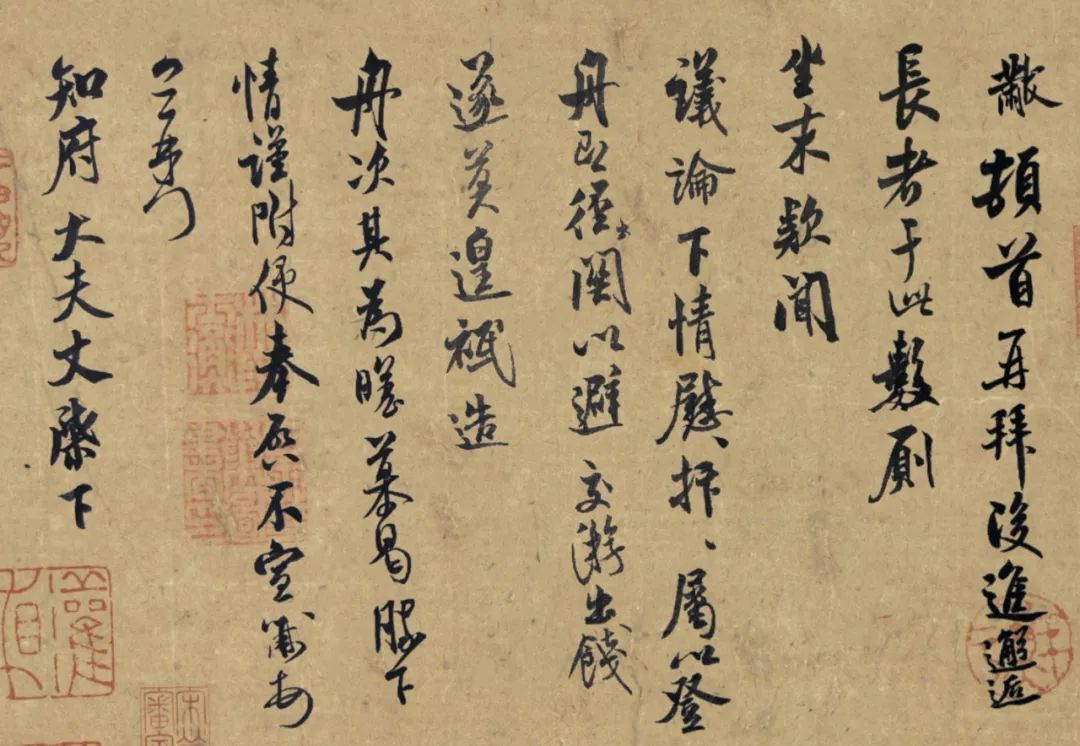 黻頓首再拜後進邂逅
長者于此數厠
坐末款聞
議論下情慰、抃、屬以登
舟即徑關以避交游出餞
遂莫遑祗造
舟次其為瞻慕曷勝下
情謹附便奉啓不宣黻
知府大夫丈棨下